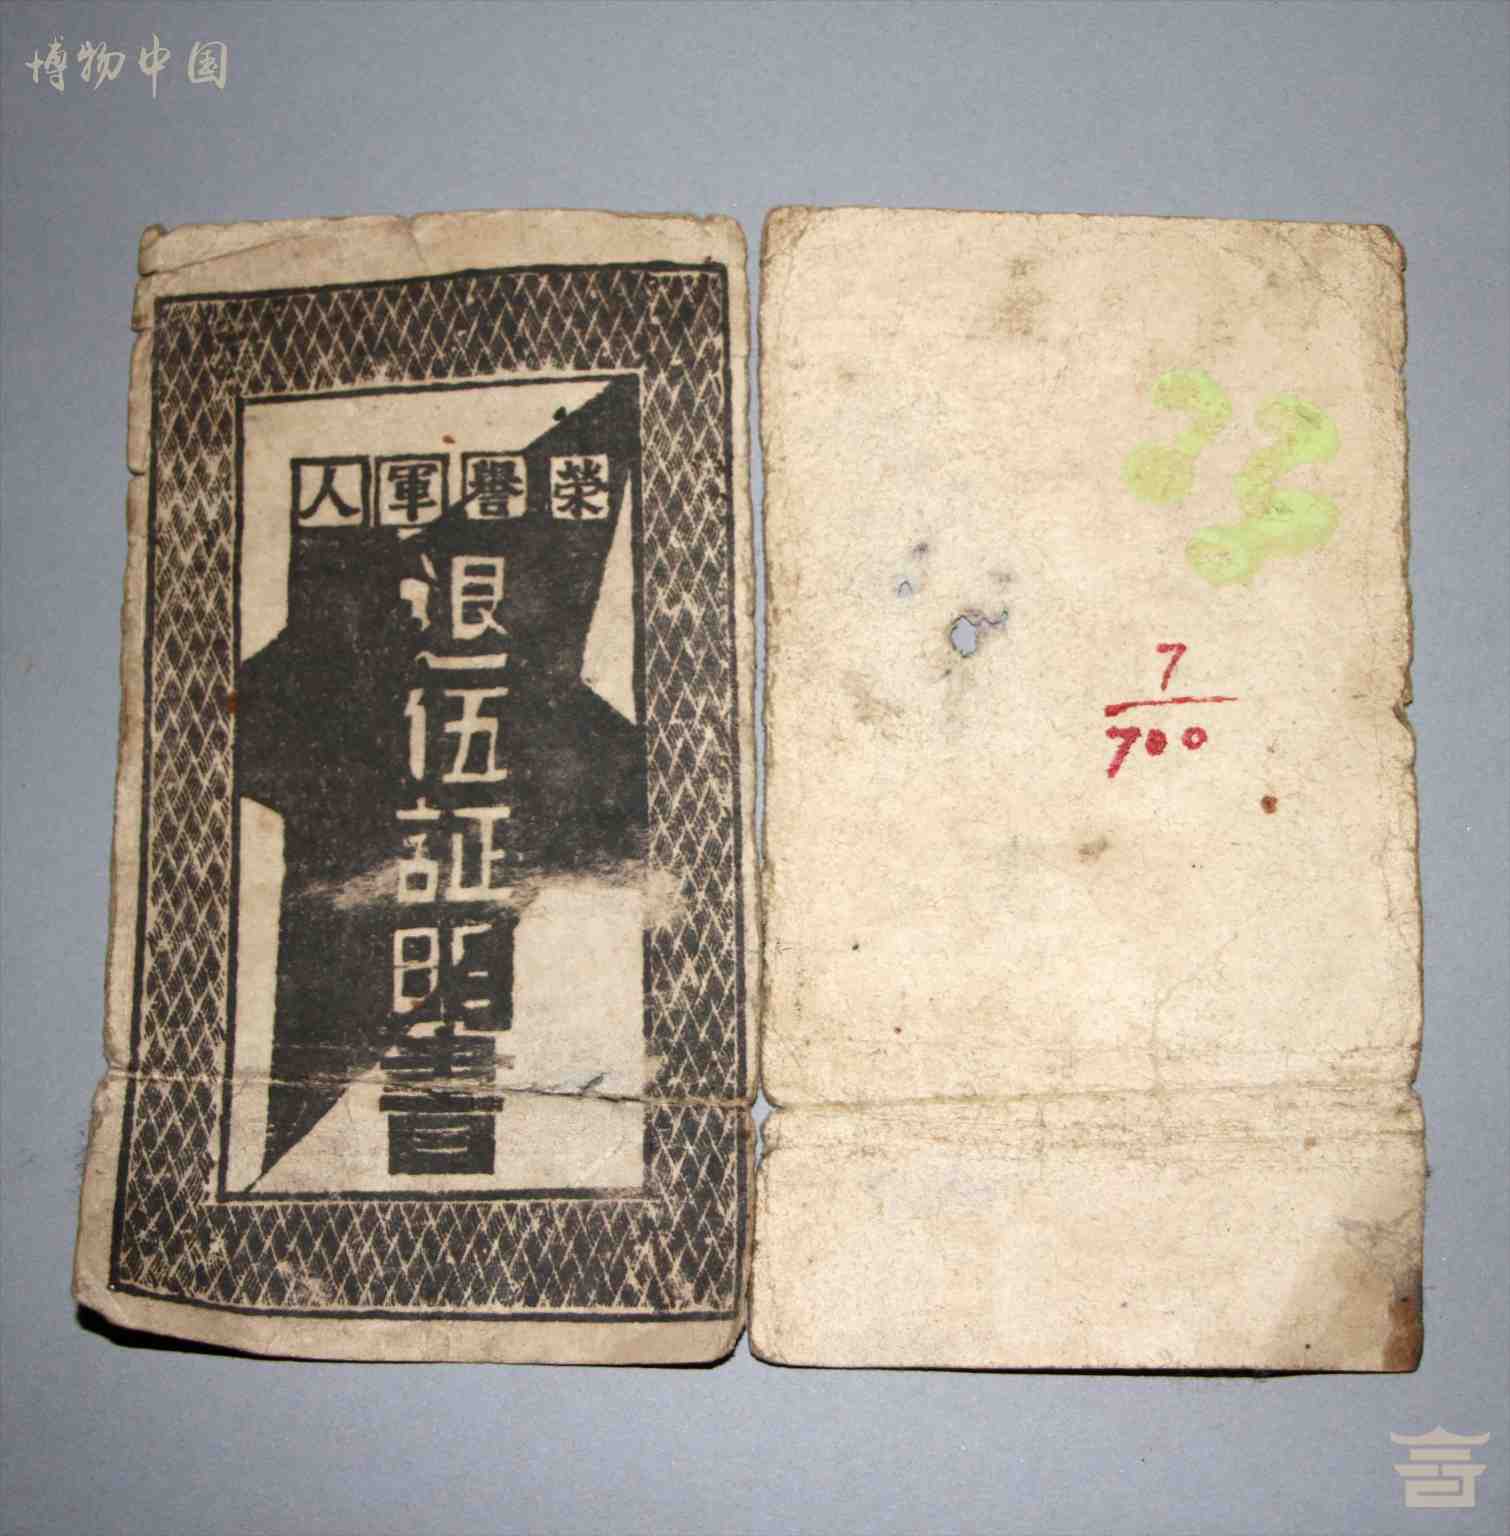 博物中国
榮譽軍人
退伍証明書
23
7
700